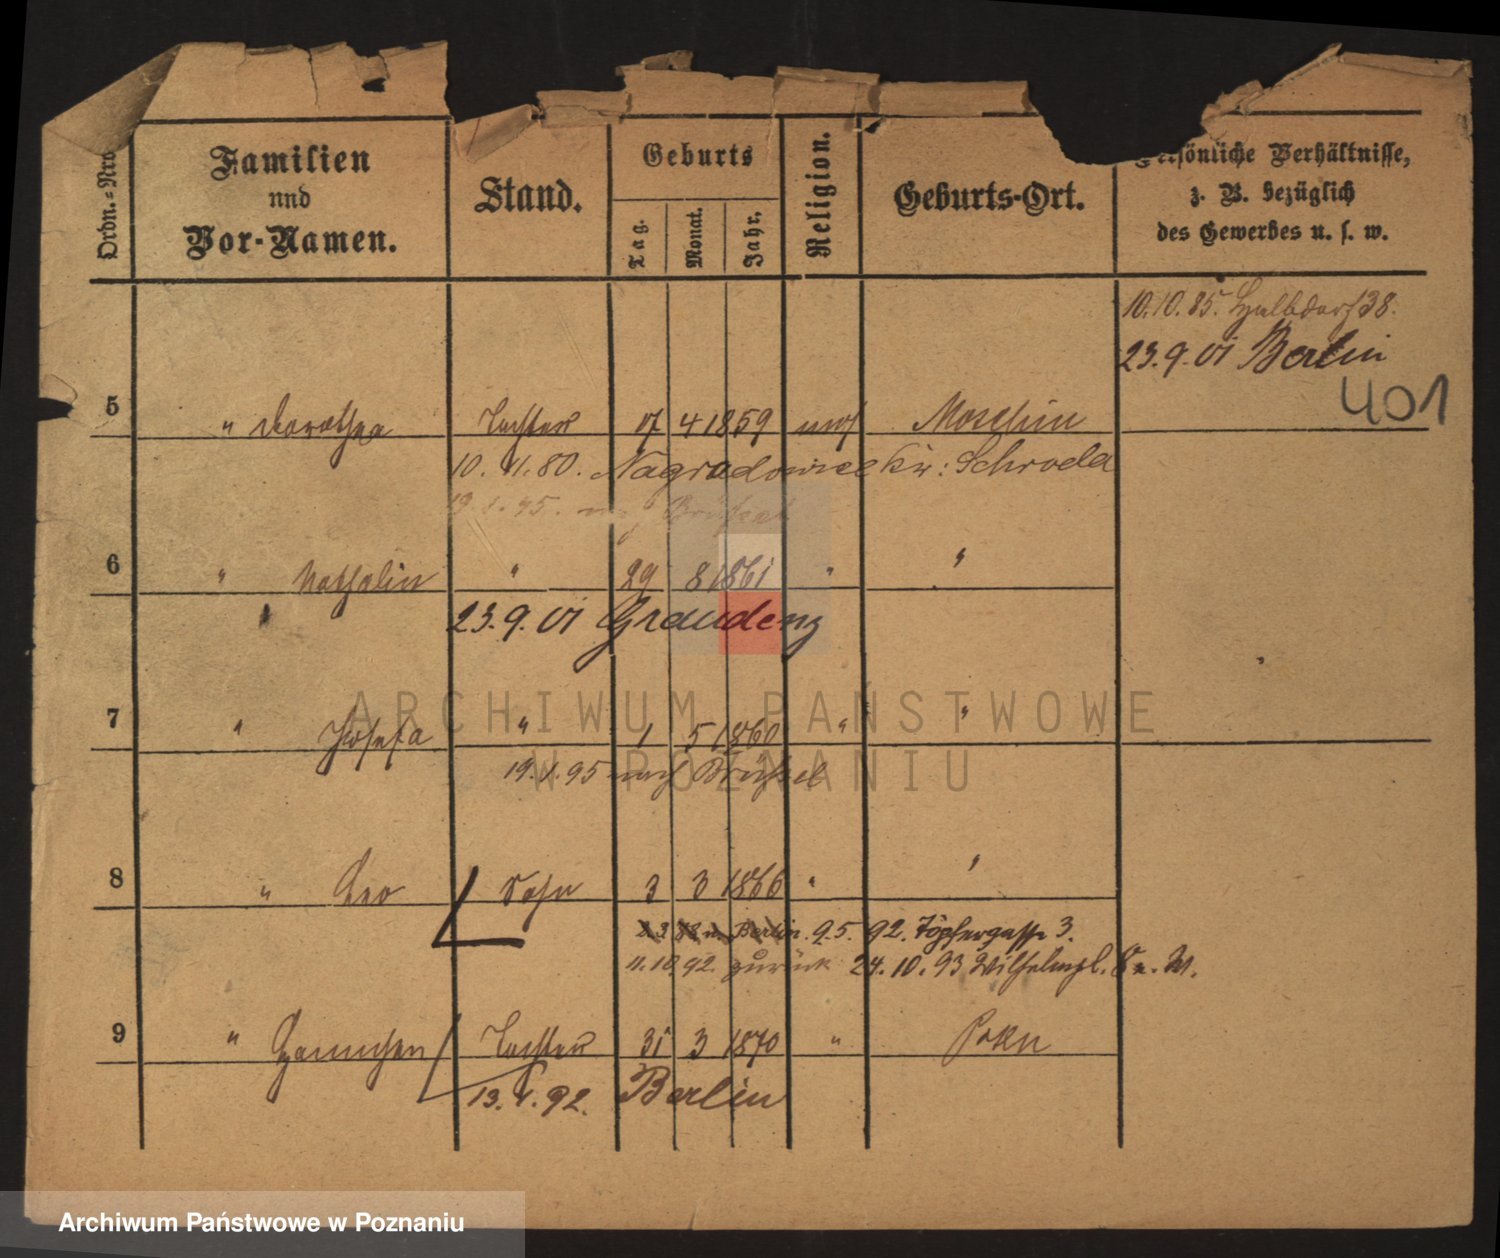 Ordn.-No
Familien
und
Vor-Namen.
Stand.
Geburts
Tag.
Monat.
Jahr.
Religion.
Geburts-Ort.
Persönliche Verhältnisse,
z. B. bezüglich
des Gewerbes u. s. w.
10.10.85. Halbdorf 38.
23.9.01 Berlin
401
5 " Dorothea Tochter 17 4 1859 mos Moschin
10. 11. 80. Nagradowice Kr: Schroda
19.1.95. nach Brüssel
6 " Nathalie " 29 8 1861 " "
23.9.01 Graudenz
7 " Josefa " 1 5 1860 " "
19.1.95 nach Brüssel
8 " Leo Sohn 3 3 1866 " "
2.3 88 n. Berlin. 9.5. 92. Töpfergasse 3.
11.10.92. zurück 24.10.93 Wilhelmpl.
9 " Hannchen Tochter 31 3 1870 " Posen
13.1.92. Berlin
ARCHIWUM PAŃSTWOWE
W POZNANIU
Archiwum Państwowe w Poznaniu